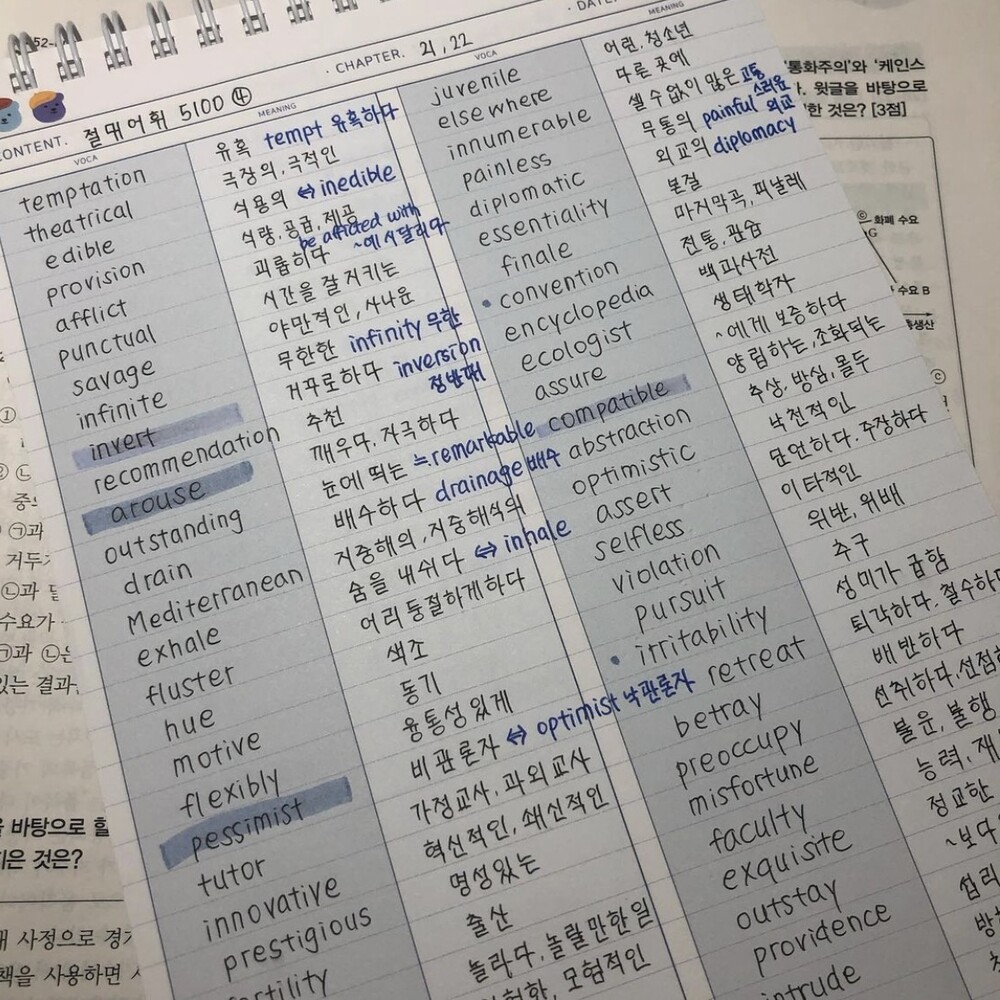 · CHAPTER. 21, 22
CONTENT. 절대어휘 5100 ④
VOCA MEANING VOCA MEANING
temptation 유혹 tempt 유혹하다
theatrical 극장의, 극적인
edible 식용의 ↔ inedible
provision 식량, 공급, 제공
afflict 괴롭히다 be afflicted with ~에 시달리다
punctual 시간을 잘 지키는
savage 야만적인, 사나운
infinite 무한한 infinity 무한
invert 거꾸로하다 inversion 정반대
recommendation 추천
arouse 깨우다, 자극하다
outstanding 눈에 띄는 ≒ remarkable
drain 배수하다 drainage 배수
Mediterranean 지중해의, 지중해식의
exhale 숨을 내쉬다 ↔ inhale
fluster 어리둥절하게하다
hue 색조
motive 동기
flexibly 융통성있게
pessimist 비관론자 ↔ optimist 낙관론자
tutor 가정교사, 과외교사
innovative 혁신적인, 쇄신적인
prestigious 명성있는
출산
놀라다, 놀랄만한일
모험적인
juvenile 어린, 청소년
elsewhere 다른 곳에
innumerable 셀 수 없이 많은
painless 무통의 painful 고통스러운
diplomatic 외교의 diplomacy 외교
essentiality 본질
finale 마지막곡, 피날레
• convention 전통, 관습
encyclopedia 백과사전
ecologist 생태학자
assure ~에게 보증하다
compatible 양립하는, 조화되는
abstraction 추상, 방심, 몰두
optimistic 낙천적인
assert 단언하다, 주장하다
selfless 이타적인
violation 위반, 위배
pursuit 추구
• irritability 성미가 급함
retreat 퇴각하다, 철수하
betray 배반하다
preoccupy 선취하다, 선점
misfortune 불운, 불행
faculty 능력,
exquisite 정교한
outstay ~보다
providence 섭리
'통화주의'와 '케인스
윗글을 바탕으로
한 것은? [3점]
ⓒ 화폐 수요
수요 B
총생산
바탕으로 할
것은?
사정으로 경기
책을 사용하면